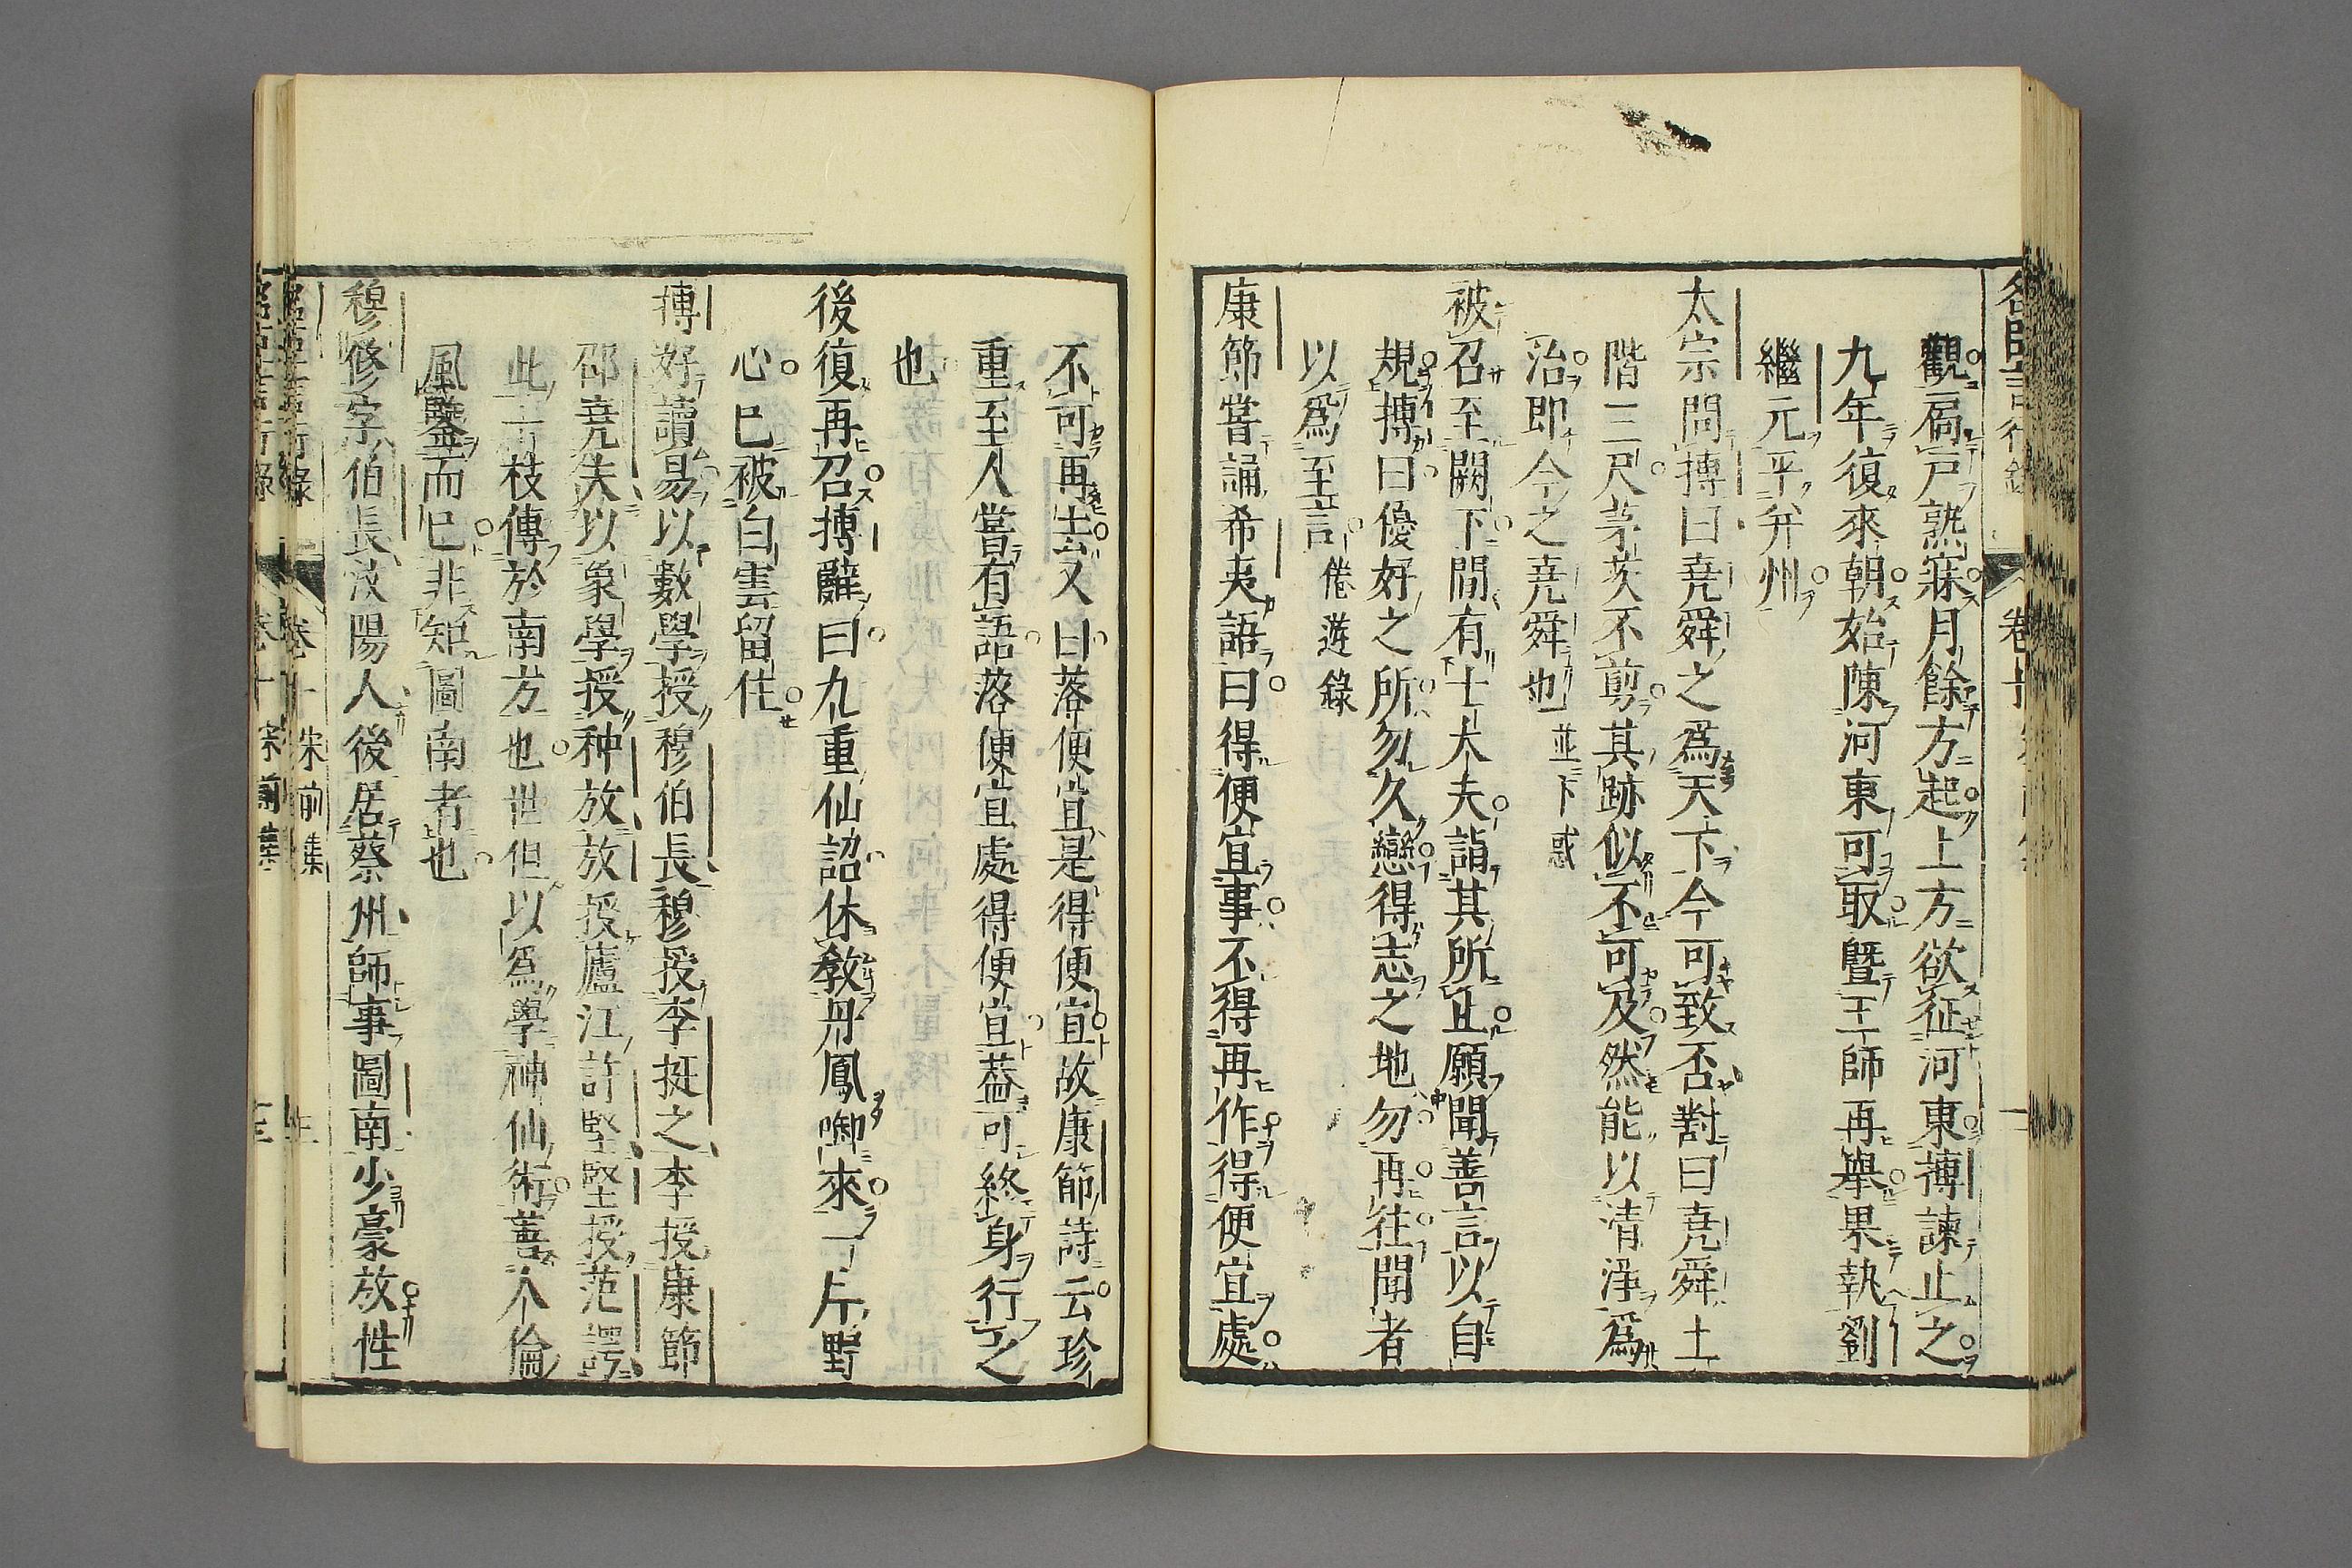 觀扄戸熟寐月餘方起上方欲征河東摶諫止之
九年復來朝始陳河東可取曁王師再舉果執劉
繼元平并州
太宗問摶曰堯舜之爲天下今可致否對曰堯舜土
階三尺茅茨不剪其跡似不可及然能以清淨爲
治即今之堯舜也並下惑
被召至闕下間有士大夫詣其所止願聞善言以自
規摶曰優好之所勿久戀得志之地勿再往聞者
以爲至言倦遊錄
康節嘗誦希夷語曰得便宜事不得再作得便宜處
不可再去又曰落便宜是得便宜故康節詩云珍
重至人嘗有語落便宜處得便宜葢可終身行之
也
後復再召摶辭曰九重仙詔休敎丹鳳啣來一片野
心已被白雲留住
摶好讀易以數學授穆伯長穆授李挺之李授康節
邵堯夫以象學授种放放授廬江許堅堅授范諤
此一枝傳於南方也世但以爲學神仙術善人倫
風鑒而已非知圖南者也
穆修字伯長汶陽人後居蔡州師事圖南少豪放性
卷十